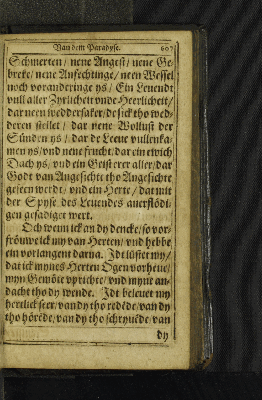 Van dem Paradyse. 607
Schmerten / nene Angest / nene Ge-
breke / nene Anfechtinge / neen Wessel
noch voranderinge ys / Ein Leuendt
vull aller Zyrlicheit vnde Heerlicheit /
dar neen weddersaker / de sick tho wed-
deren stellet / dar nene Wollust der
Sünden ys / dar de Leeue vullenka-
men ys / vnd nene frucht / dar ein ewich
Dach ys / vnd ein Geist erer aller / dar
Godt van Angesichte tho Angesichte
geseen werdt / vnd ein Herte / dat mit
der Spyse des Leuendes auerflödi-
gen gesadiget wert.
Och wenn ick an dy dencke / so vor-
fröuwe ick my van Herten / vnd hebbe
ein vorlangent darna. Jdt lüstet my /
dat ick mynes Herten Ogen vorheue /
myn Gemöte vprichte / vnd myne an-
dacht tho dy wende. Jdt beleuet my
hertlick seer / van dy tho redēde / van dy
tho hörēde / van dy tho schryuēde / van
dy